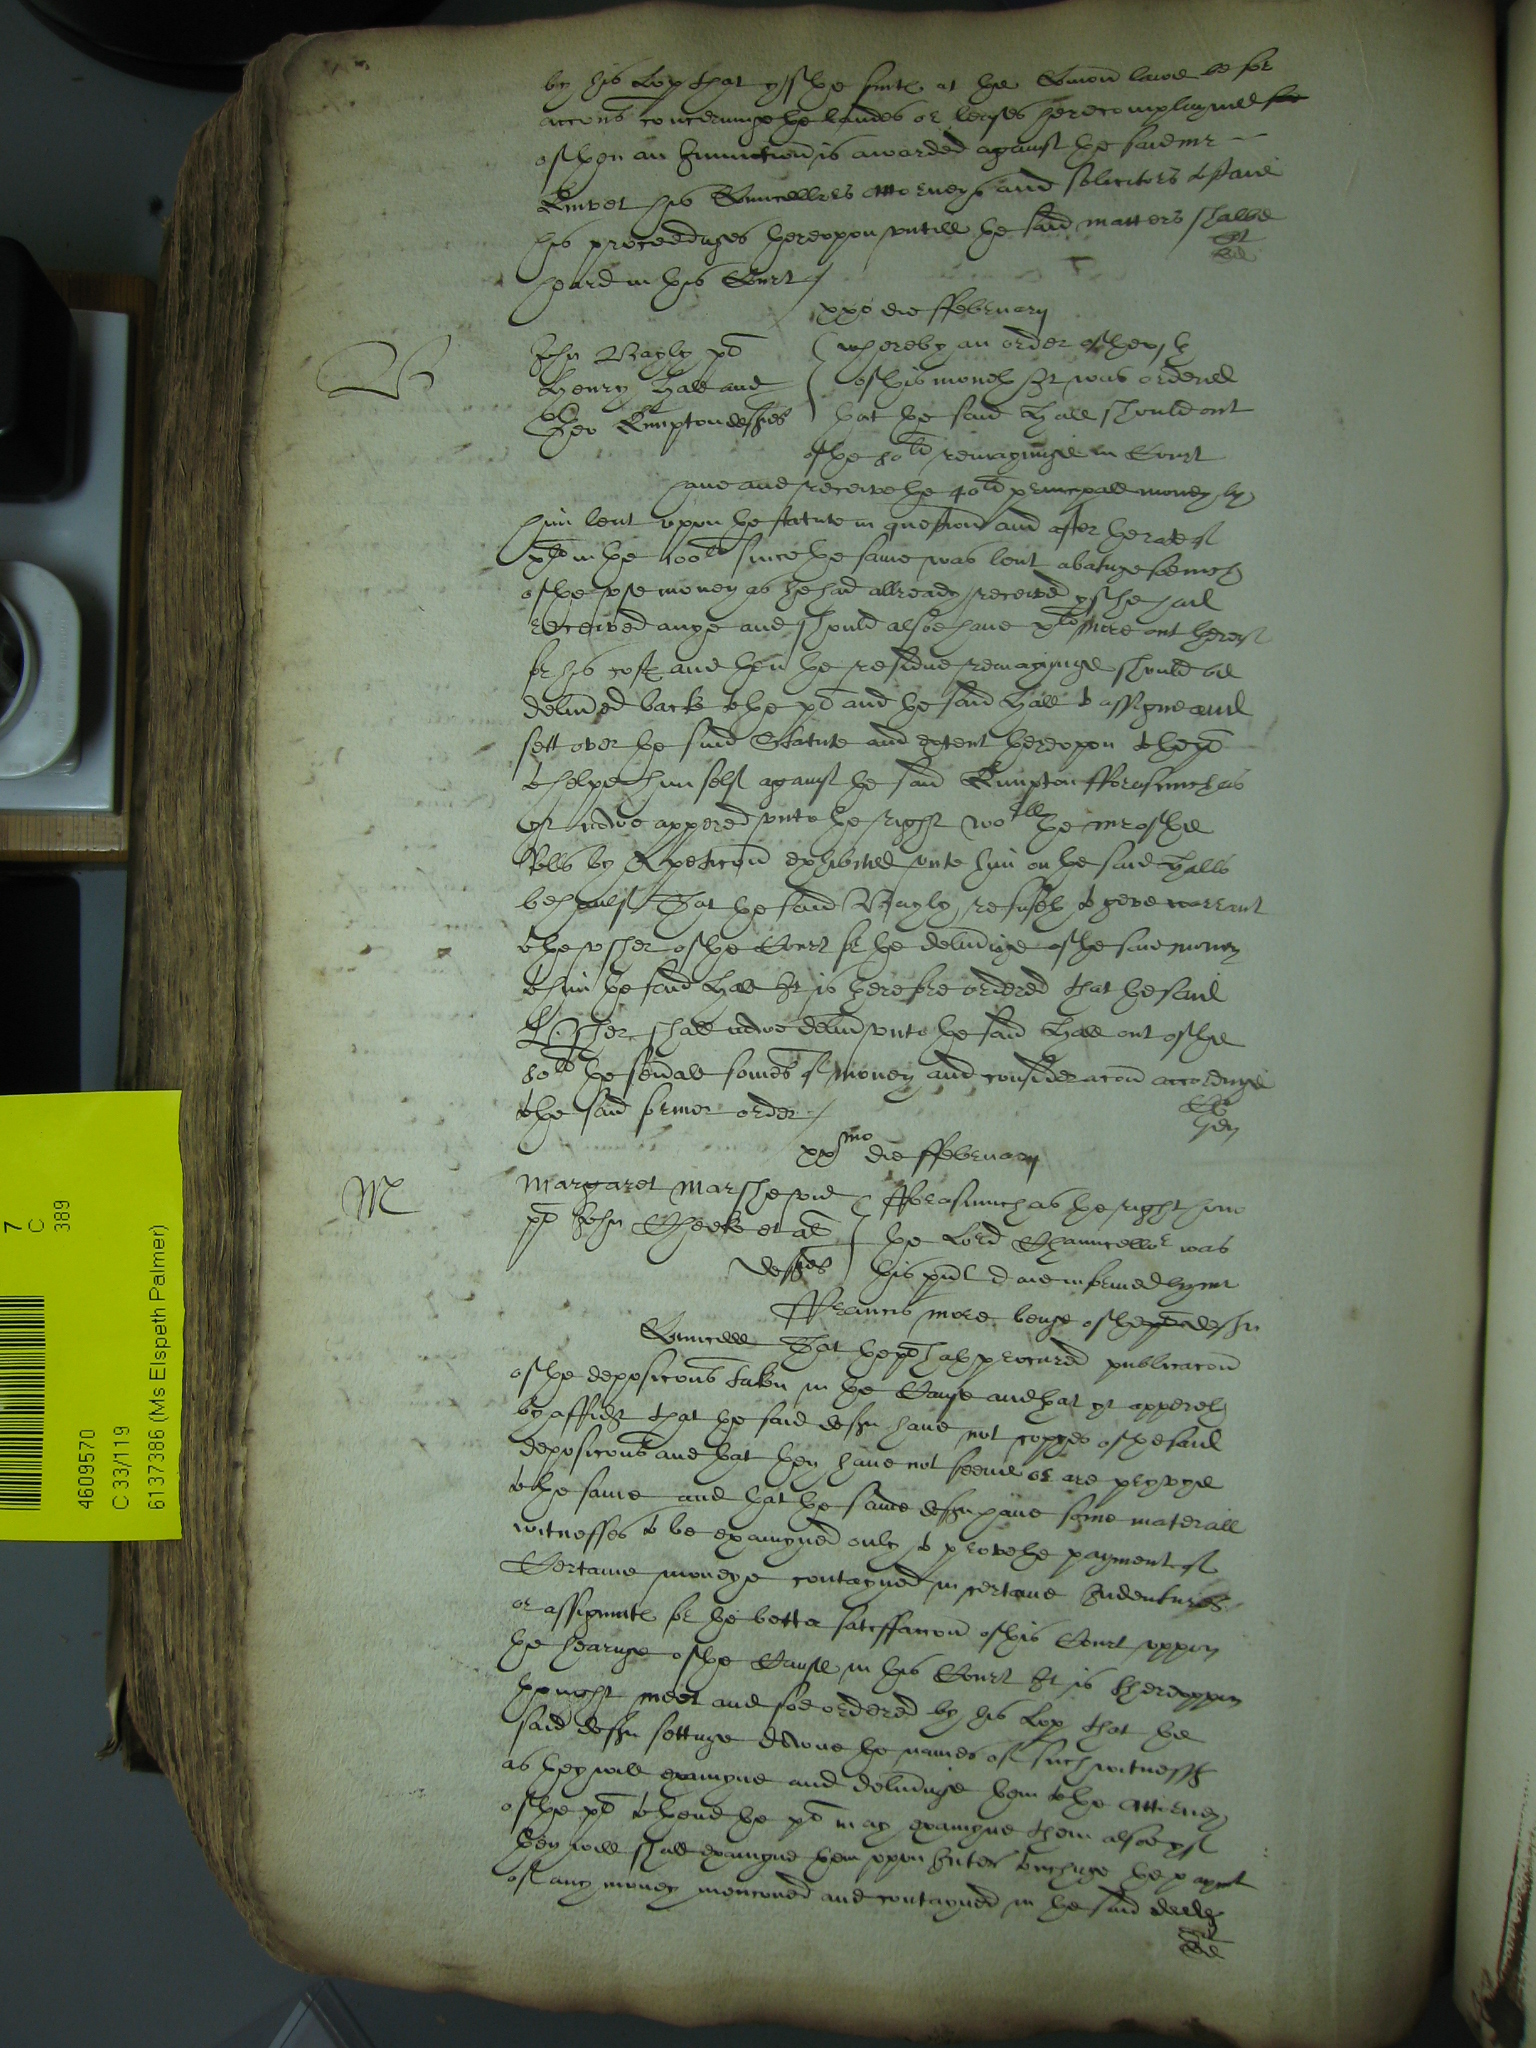 by his Lop that yf the suite at the Comon lawe be for
accons concerninge the landes or leases here complayned
of then an Iniunction is awarded against the said mr
his Councellors attorneys and solicitors to staie
his proceedinges thereopon untill the said matters shalbe
heard in this Court
xxo die ffebruary
John Bagly pl
Henry Hall and
Geo Kimpton deftes
whereby an order of the
of this moneth It was ordered
that the said Hall should out
of the li remayninge in Court
have and receive the 40li principall money by
him lent upon the statute in question and after the rate of
xli in the 100li since the same was lent abatinge soe much
of the use money as he had allready received yf he had
received anye and should alsoe have vli more out thereof
for his costes and then the residue remayninge should be
delivered back to the pl and the said Hall to assigne and
sett over the said Statute and extent thereopon to the pl
to helpe himself against the said Kimpton fforasmuch as
yt nowe appered unto the right wo the mr of the
Rolls by A peticon exhibited unto him on the said Halls
behaulf That the said Bagly refuseth to geve warrant
to the usher of the Court for the deliveringe of the said money
to him the said Hall It is therefore ordered that the said
Usher shall nowe deliver unto the said Hall out of the
li the severall somes of money and consideracon accordinge
to the said former order
xxmo die ffebruary
M
Margaret Marshe vid
pl John Cheeke et al
deftes
fforasmuch as the right hono
the Lord Chauncellor was
this present daie informed by mr
ffrancis more beinge of the deftes
Councell That the pl hath procured publicacon
of the deposicons taken in the Cause and that yt appereth
by affidt that the said deftes have not copyes of the said
deposicons and that they have not seene or are pryvye
to the same and that the same deftes have some materiall
witnesses to be examyned only to prove the payment of
Certaine moneye contayned in certaine Indentures
or assignmts for the better satisffaccon of this Court uppon
the hearinge of the Cause in this Court It is thereuppon
thought meet and soe ordered by his Lop that the
said deftes settinge downe the names of such witnesses
as they will examyne and deliveringe them to the attorney
of the pl to thend the pl may examyne them alsoe yf
they will shall examyne them uppon Inter touchinge the paymt
of any money mencioned and contayned in the said deedes
7
C
389
4609570
C 33/119
6137386 (Ms Elspeth Palmer)